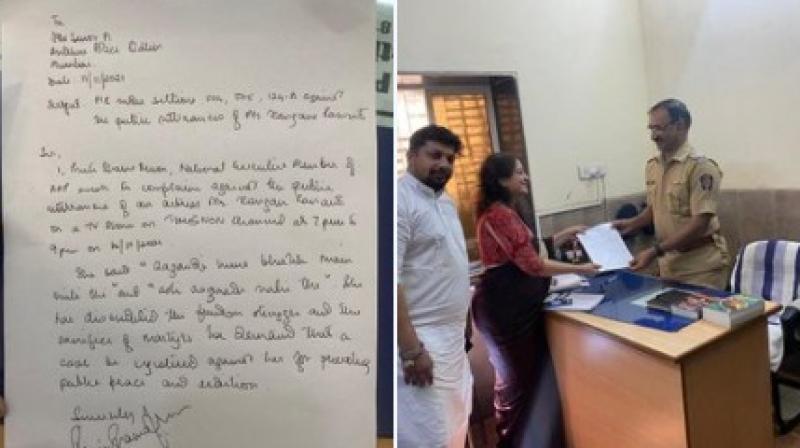 To
Andheri Police
Mumbai
Date 11/11/2021
Subject FIR under sections 504, 505, 124-A against
the public utterances of Ms Kangana Ranaut
Sir,
I, Preeti Sharma Menon, National Executive Member of
AAP to complain against the public
utterances of an actress Ms. Kangana Ranaut
on a TV show on channel at 7 pm to
9 pm on 10/11/2021
She said "aazaadi bheekh mein
mili thi" and "asli aazaadi
has discredited the freedom struggle and the
sacrifices of martyrs. We demand that a
case be registered against her for provoking
public peace and sedition
Sincerely